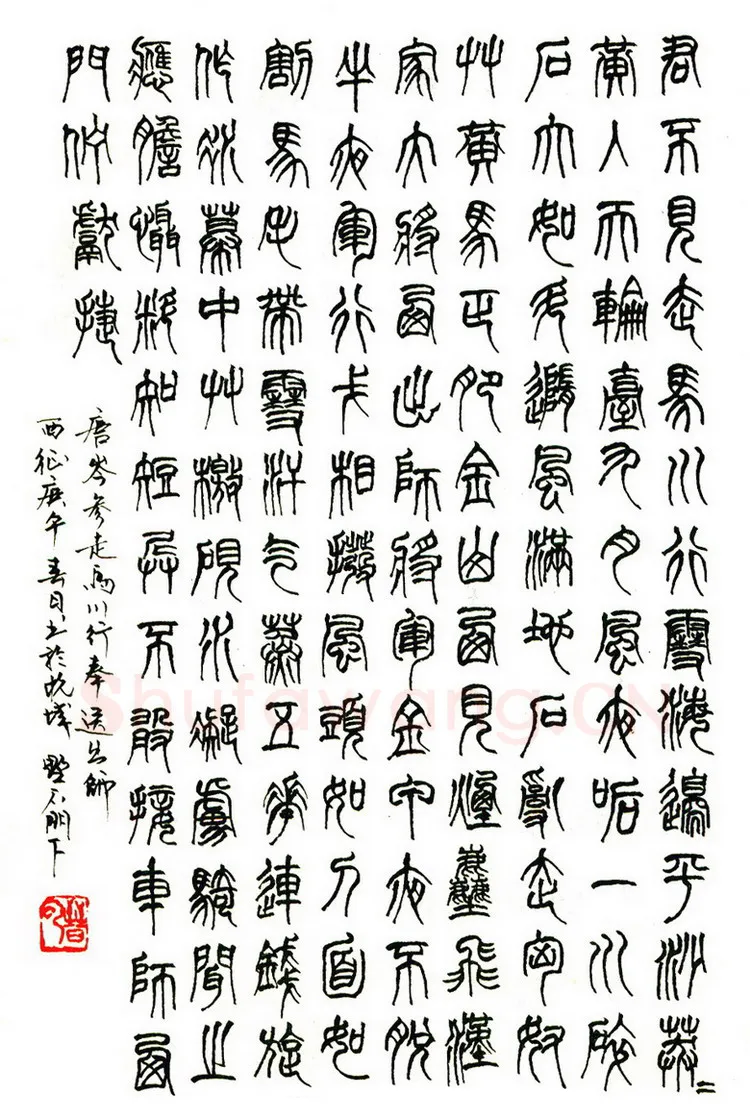 君不見走馬川行雪海邊平沙莽=
黃入天輪臺九月風夜吼一川碎
石大如斗隨風滿地石亂走匈奴
艸黃馬正肥金山西見煙塵飛漢
家大將西出師將軍金甲夜不脫
半夜軍行戈相撥風頭如刀面如
割馬毛帶雪汗气蒸五花連錢旋
作冰幕中艸檄硯水凝虜騎聞之
應膽懾料知短兵不敢接車師西
門佇獻捷
唐岑參走馬川行奉送出師
西征庚午春日书於杭城
Shufawang.CN